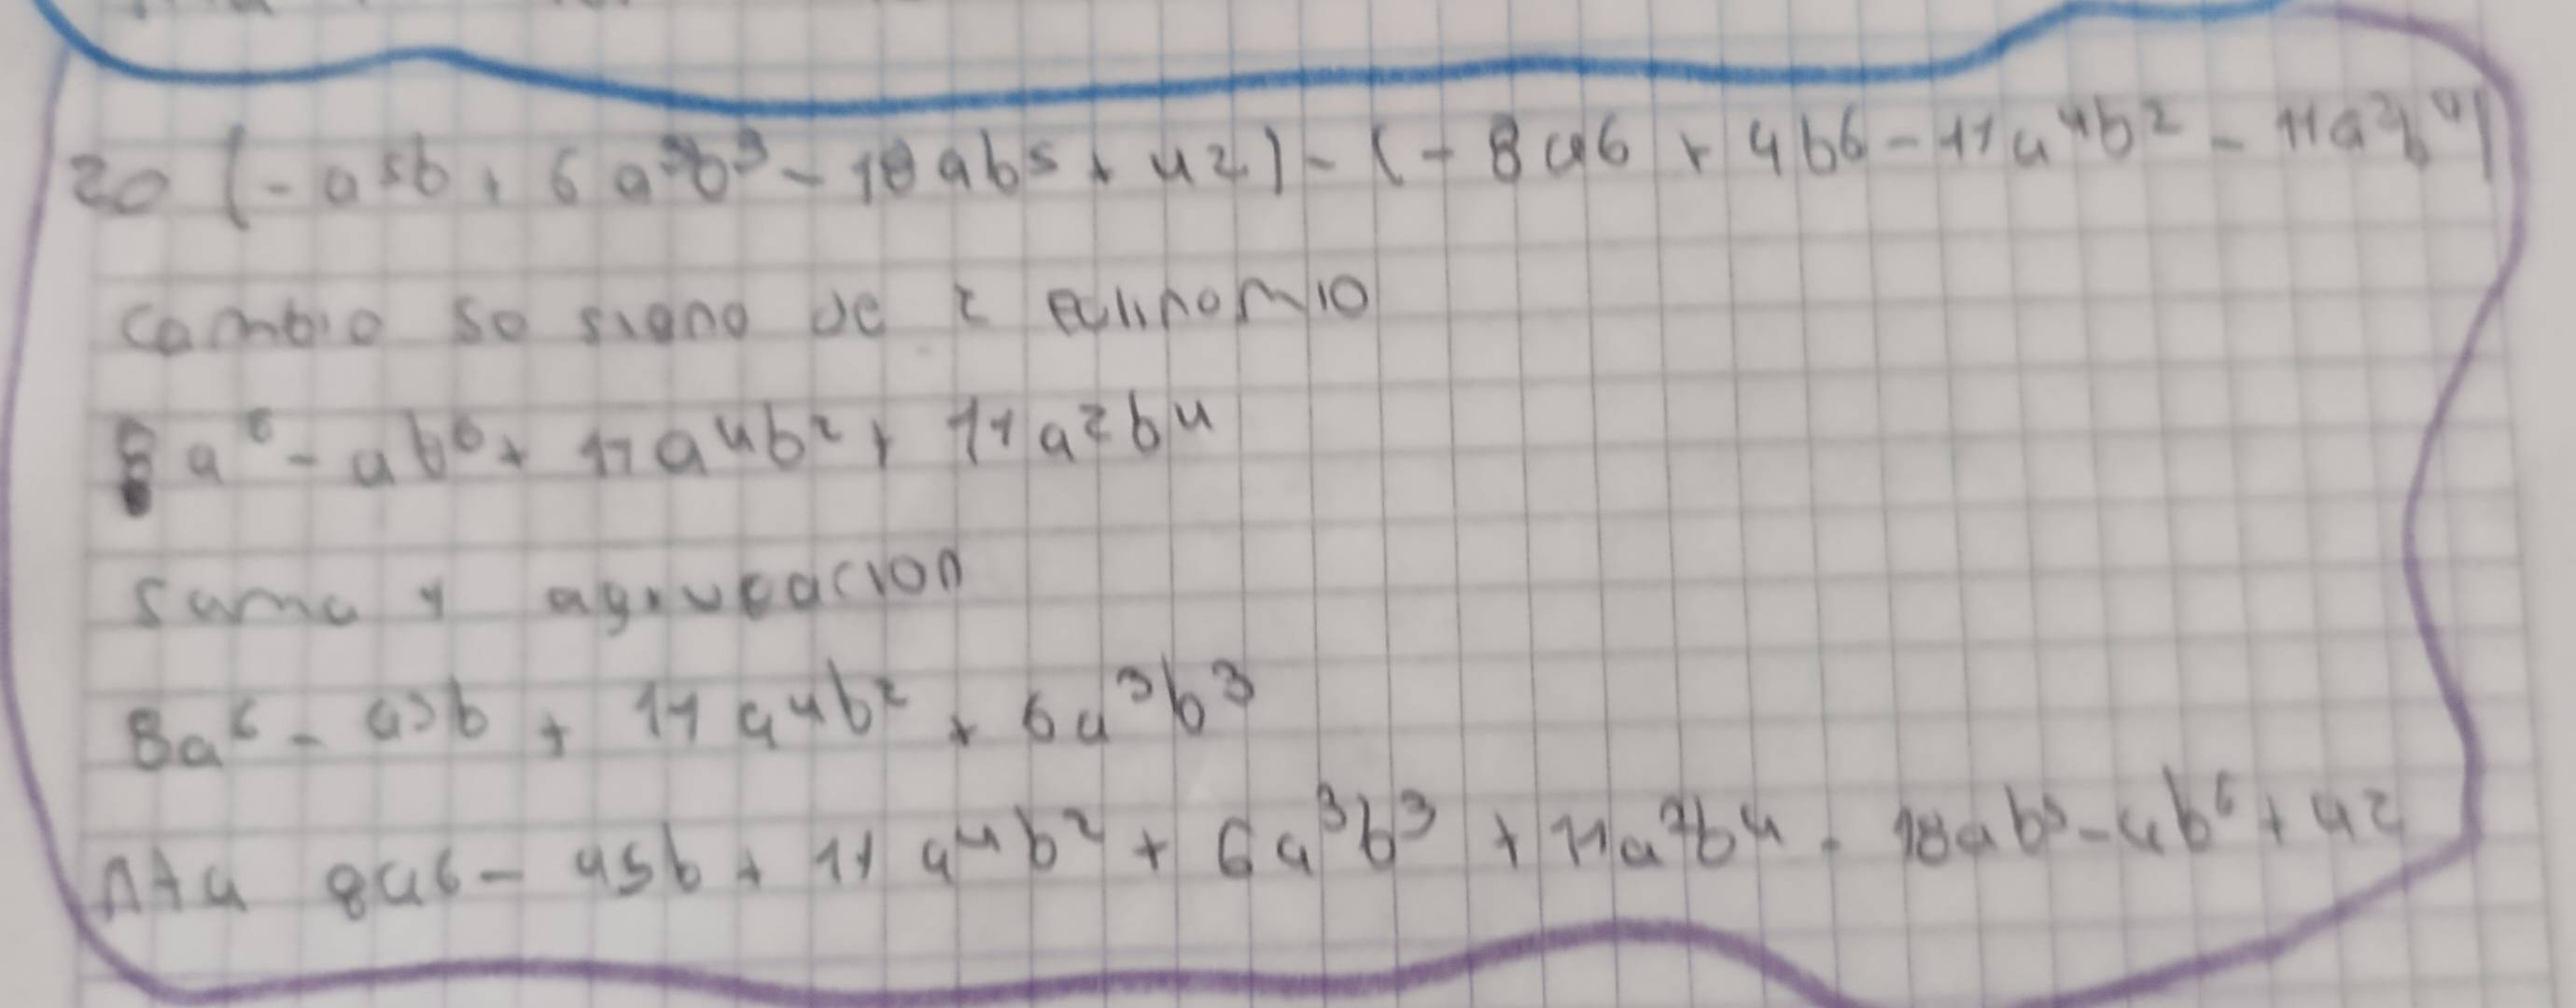 20 (-a⁵b + 6a³b³ - 18ab⁵ + 42) - (-8a6 + 4b6 - 11a⁴b² - 11a²b⁴)
cambio so signo de 2 Polinomio
8a⁶ - 4b⁶ + 11a⁴b² + 11a²b⁴
suma y agrupacion
8a⁶ - a5b + 11a⁴b² + 6a³b³
Rta 8a6 - a5b + 11a⁴b² + 6a³b³ + 11a²b⁴ - 18ab⁵ - 4b⁶ + 42